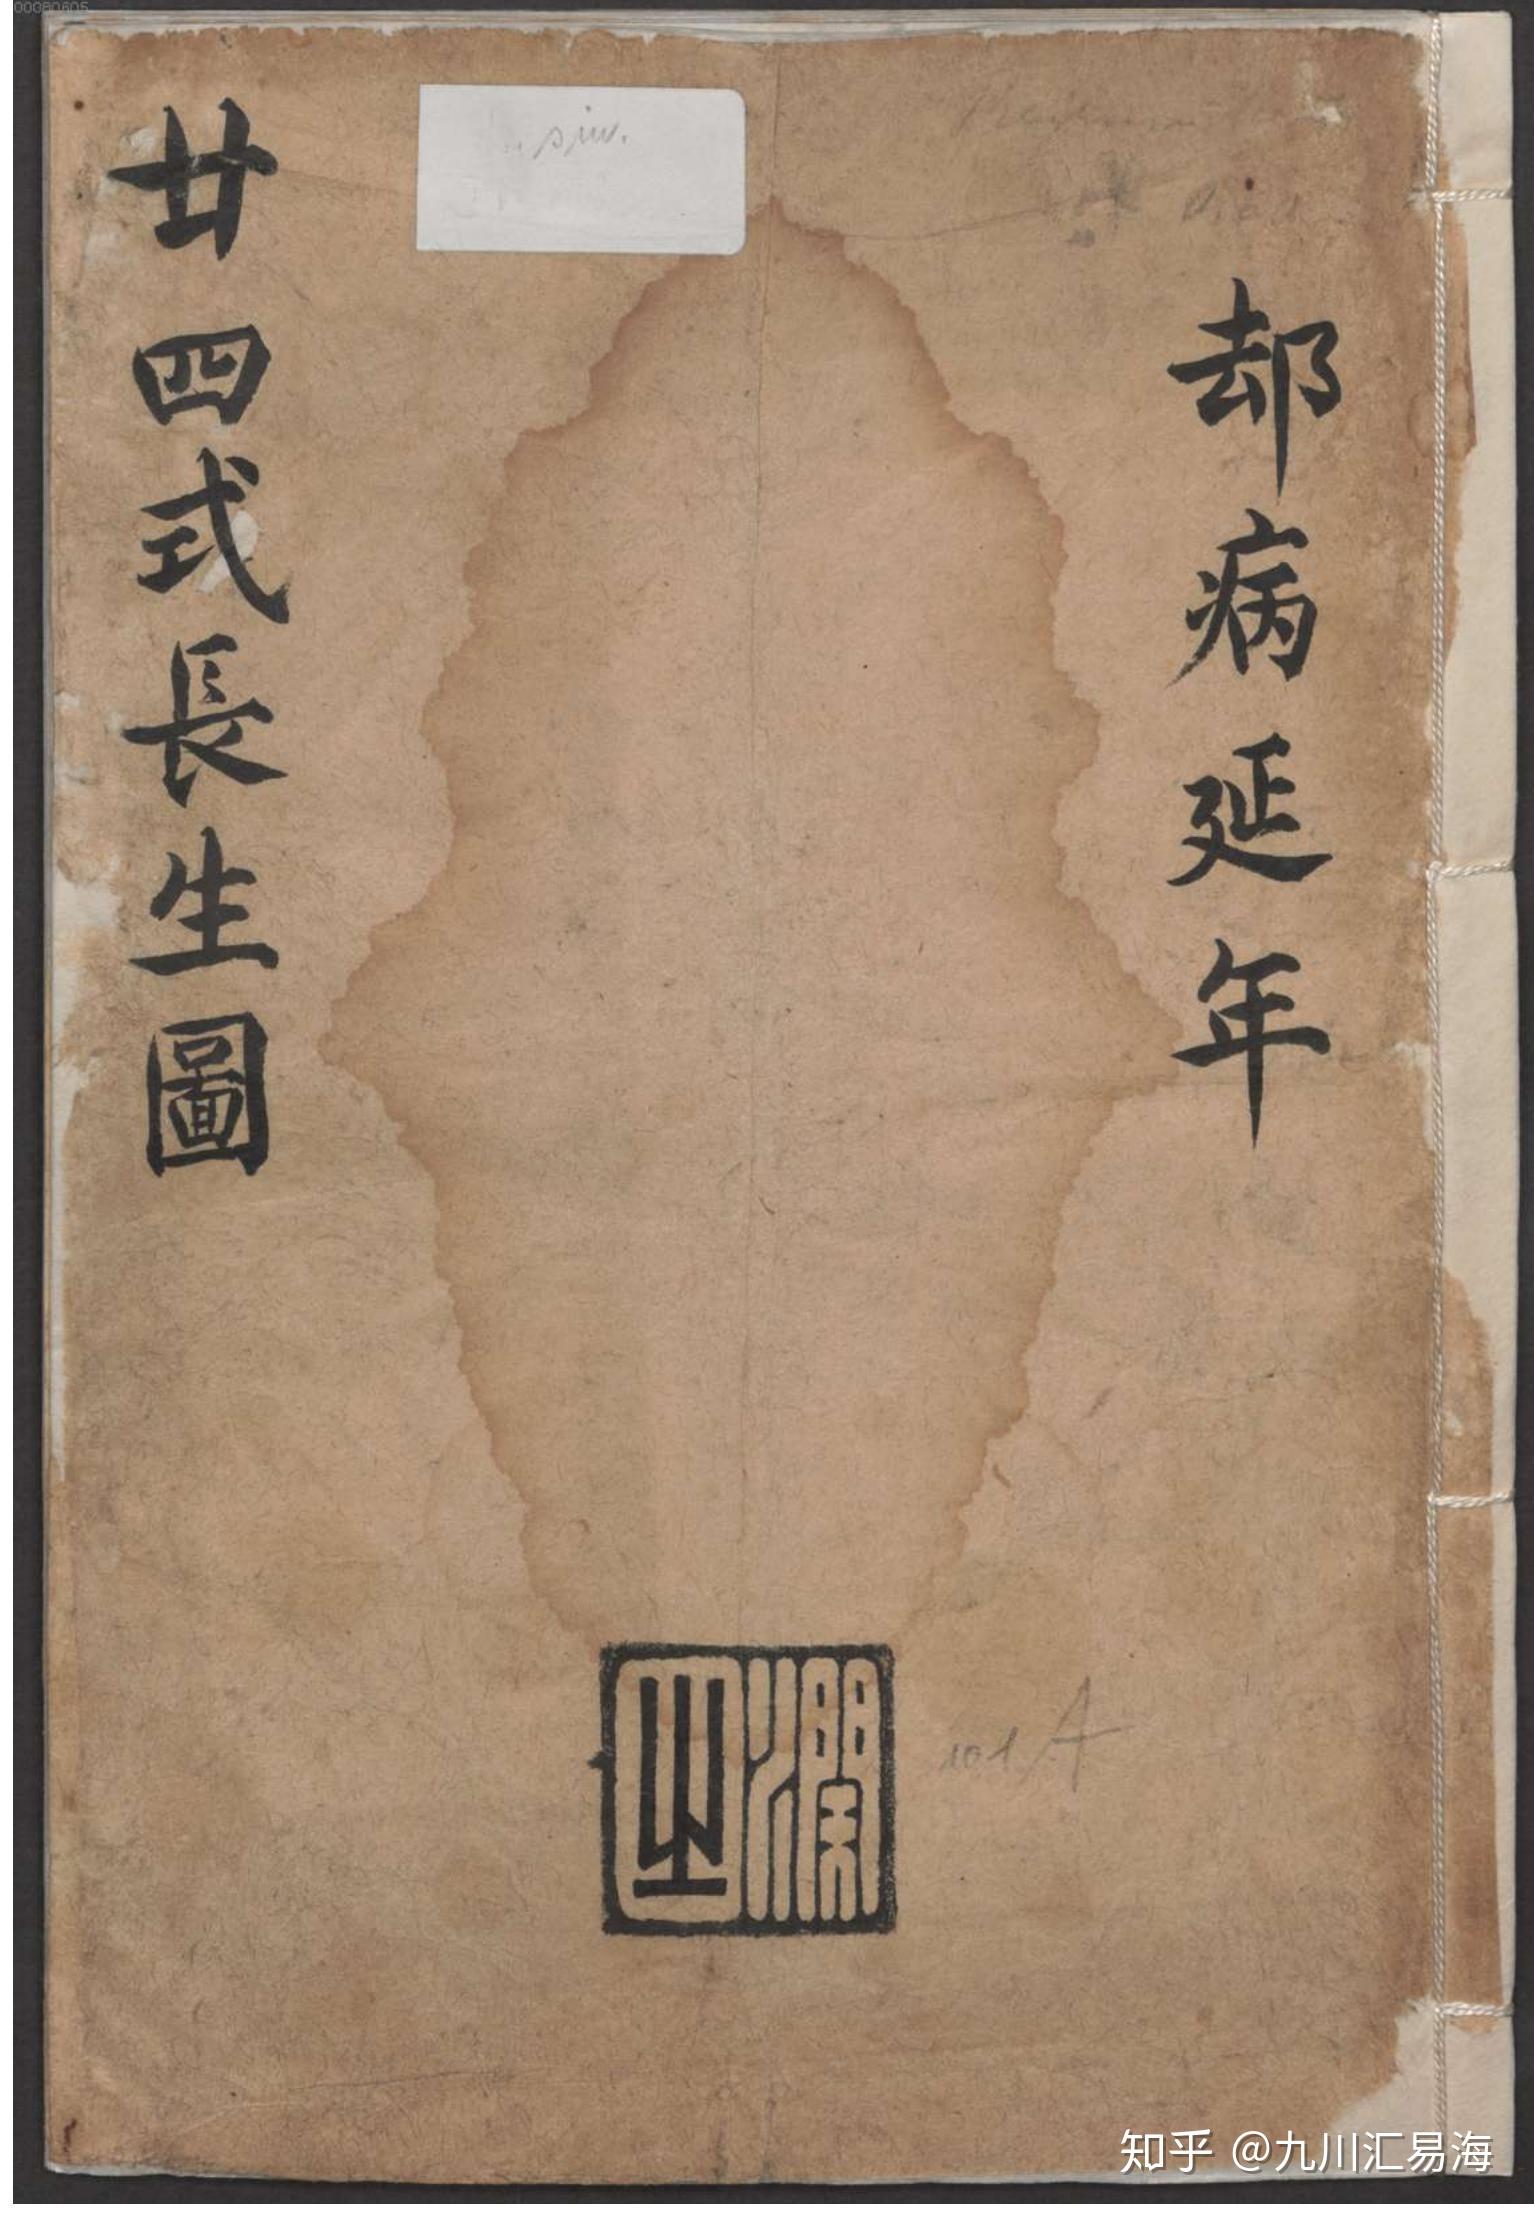 00080605
sin.
却病延年
廿四式長生圖
101 A
知乎 @九川汇易海